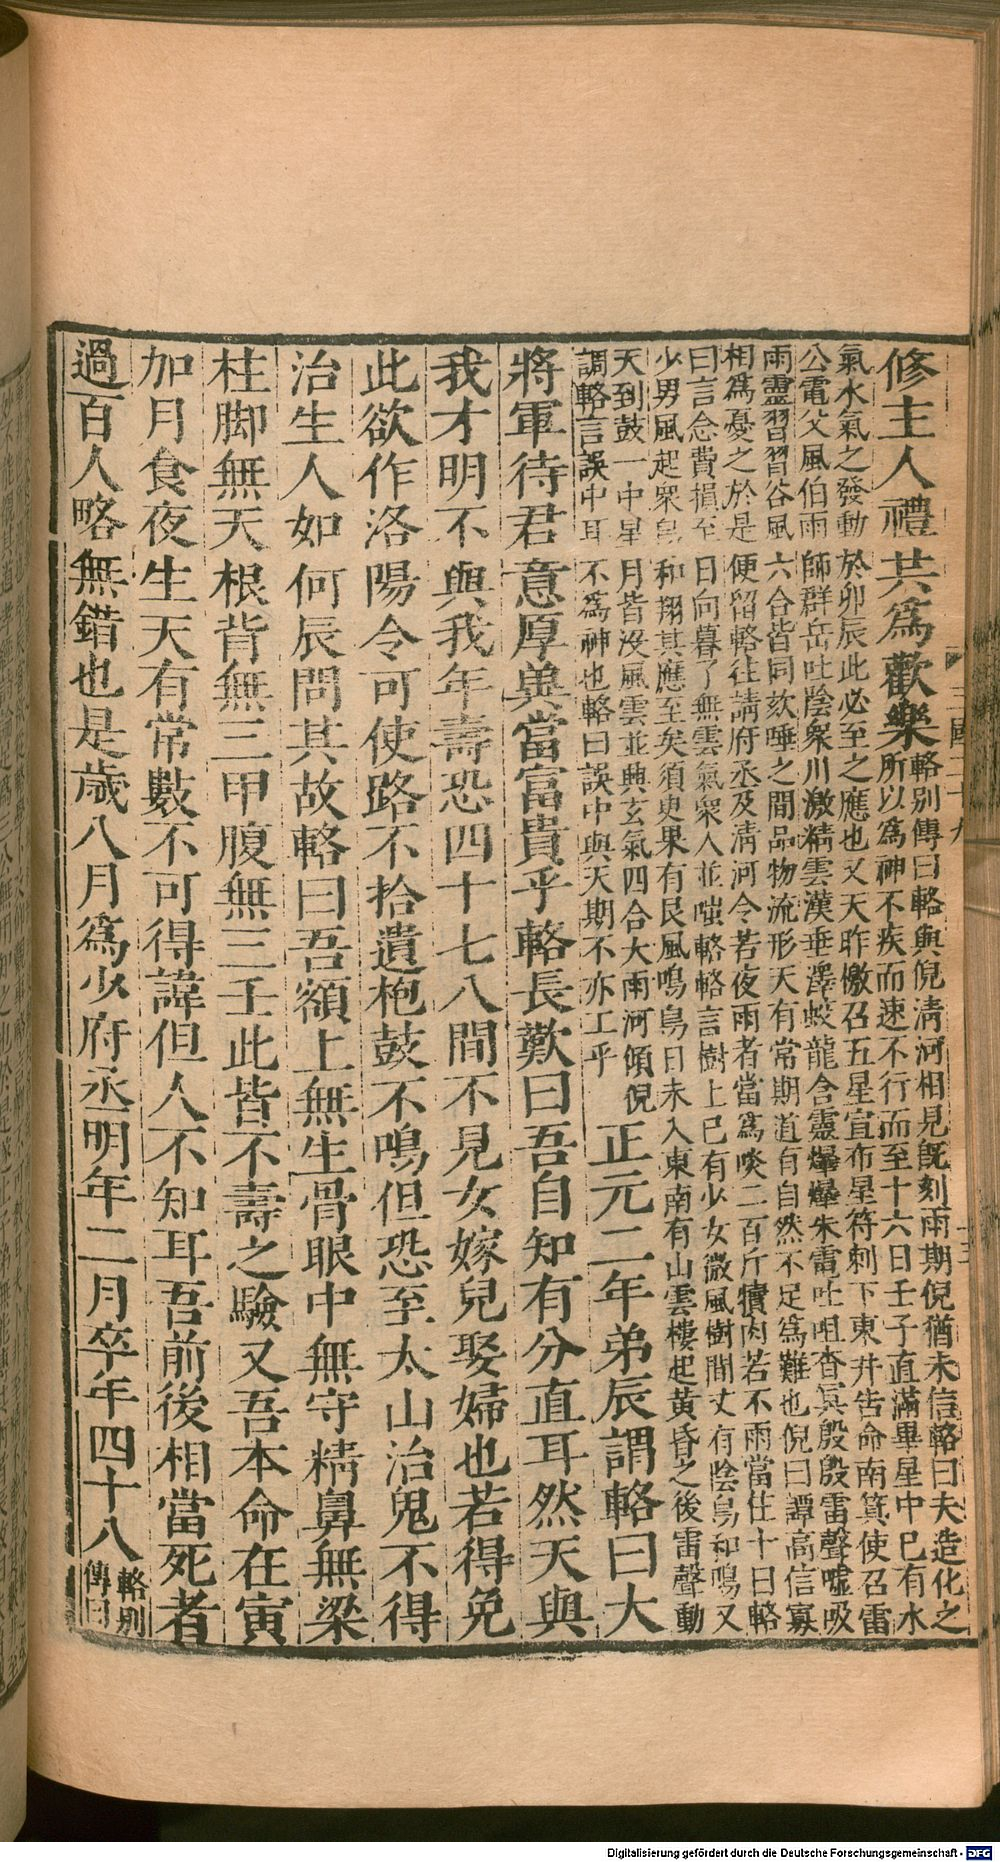 修主人禮共爲歡樂
輅別傳曰輅與倪清河相見旣刻雨期倪猶未信輅曰夫造化之
所以爲神不疾而速不行而至十六日壬子直滿畢星中巳有水
氣水氣之發動於卯辰此必至之應也又天昨檄召五星宣布星符刺下東井告命南箕使召雷
公電父風伯雨師群岳吐陰衆川激精雲漢垂澤蛟龍含靈爆爆朱雷吐咀杳冥殷殷雷聲噓吸
雨靈習習谷風六合皆同欬唾之間品物流形天有常期道自自然不足爲難也倪曰譚高信寡
相爲憂之於是便留輅往請府丞及淸河令若夜雨者當爲啖二百斤犢肉若不雨當住十日輅
曰言念費損至日向暮了無雲氣衆人並嗤輅輅言樹上巳有少女微風樹間丈有陰鳥和鳴又
少男風起衆鳥和翔其應至矣須臾果有艮風鳴鳥日未入東南有山雲樓起黃昏之後雷聲動
天到鼓一中星月皆没風雲並興玄氣四合大雨河傾倪
調輅言誤中耳不爲神也輅曰誤中與天期不亦工乎
正元二年弟辰謂輅曰大
將軍待君意厚兾當富貴乎輅長歎曰吾自知有分直耳然天與
我才明不與我年壽恐四十七八間不見女嫁兒娶婦也若得免
此欲作洛陽令可使路不拾遺枹鼓不鳴但恐至太山治鬼不得
治生人如何辰問其故輅曰吾額上無生骨眼中無守精鼻無梁
柱脚無天根背無三甲腹無三壬此皆不壽之驗又吾本命在寅
加月食夜生天有常數不可得諱但人不知耳吾前後相當死者
過百人略無錯也是歲八月爲少府丞明年二月卒年四十八
輅別
傳曰
三國二十九
Digitalisierung gefördert durch die Deutsche Forschungsgemeinschaft - DFG